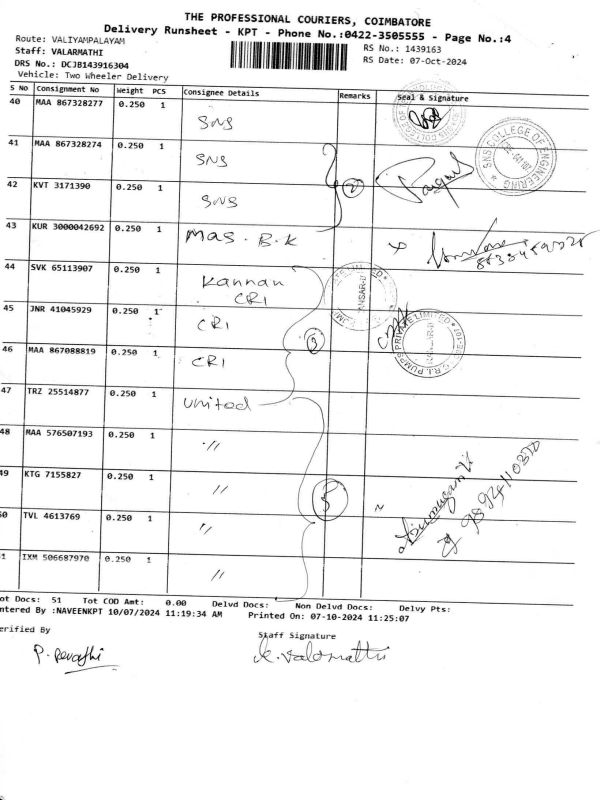 THE PROFESSIONAL COURIERS, COIMBATORE
Delivery Runsheet - KPT - Phone No.:0422-3505555 - Page No.:4
Route: VALIYAMPALAYAM
RS No.: 1439163
Staff: VALARMATHI
RS Date: 07-Oct-2024
DRS No.: DCJB143916304
Vehicle: Two Wheeler Delivery
S No Consignment No Weight PCS Consignee Details Remarks Seal & Signature
40 MAA 867328277 0.250 1 SNS
41 MAA 867328274 0.250 1 SNS
42 KVT 3171390 0.250 1 SNS
SNS COLLEGE OF ENGINEERING
43 KUR 3000042692 0.250 1 Mas. B.K
44 SVK 65113907 0.250 1 Kannan
CRI
45 JNR 41045929 0.250 1 CRI
46 MAA 867088819 0.250 1 CRI 3
C.R.I. PUMPS PRIVATE LIMITED
47 TRZ 25514877 0.250 1 United
48 MAA 576507193 0.250 1 〃
49 KTG 7155827 0.250 1 〃 5
50 TVL 4613769 0.250 1 〃
51 IXM 506687970 0.250 1 〃
ot Docs: 51 Tot COD Amt: 0.00 Delvd Docs: Non Delvd Docs: Delvy Pts:
ntered By :NAVEENKPT 10/07/2024 11:19:34 AM Printed On: 07-10-2024 11:25:07
erified By
Staff Signature
P. Revathi
K. Valarmathi